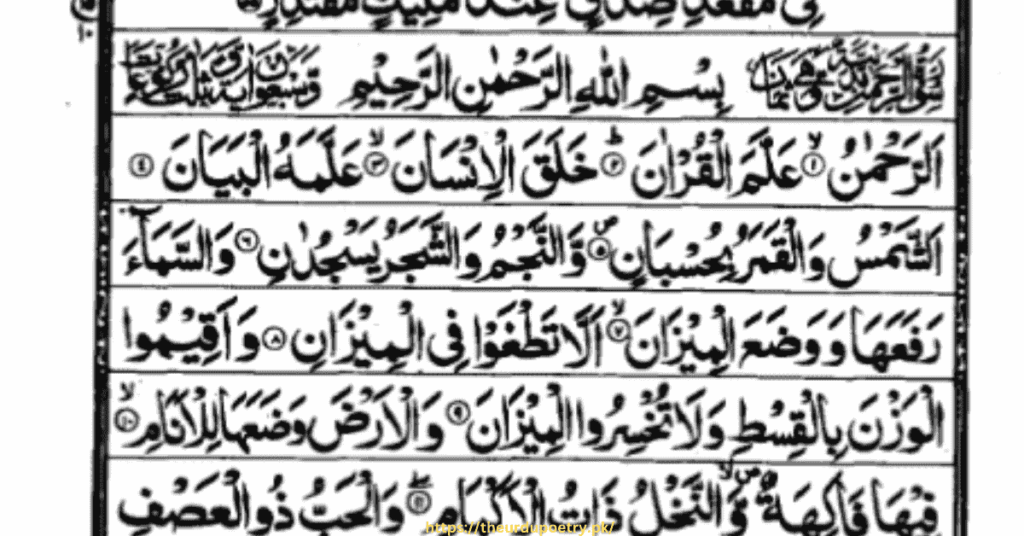 فِىۡ مَقۡعَدِ صِدۡقٍ عِنۡدَ مَلِيۡكٍ مُّقۡتَدِرٍ
بِسۡمِ اللهِ الرَّحۡمٰنِ الرَّحِيۡمِ
اَلرَّحۡمٰنُ ۙ‏﴿۱﴾ عَلَّمَ الۡقُرۡاٰنَ ؕ‏﴿۲﴾ خَلَقَ الۡاِنۡسَانَ ۙ‏﴿۳﴾ عَلَّمَهُ الۡبَيَانَ ﴿۴﴾
اَلشَّمۡسُ وَالۡقَمَرُ بِحُسۡبَانٍ ﴿۵﴾ وَّالنَّجۡمُ وَالشَّجَرُ يَسۡجُدٰنِ ﴿۶﴾ وَالسَّمَآءَ
رَفَعَهَا وَوَضَعَ الۡمِيۡزَانَ ۙ‏﴿۷﴾ اَلَّا تَطۡغَوۡا فِى الۡمِيۡزَانِ ﴿۸﴾ وَاَقِيۡمُوا
الۡوَزۡنَ بِالۡقِسۡطِ وَلَا تُخۡسِرُوا الۡمِيۡزَانَ ﴿۹﴾ وَالۡاَرۡضَ وَضَعَهَا لِلۡاَنَامِ ۙ‏﴿۱۰﴾
فِيۡهَا فَاكِهَةٌ وَّالنَّخۡلُ ذَاتُ الۡاَكۡمَامِ ﴿۱۱﴾ وَالۡحَبُّ ذُو الۡعَصۡفِ
https://theurdupoetry.pk/